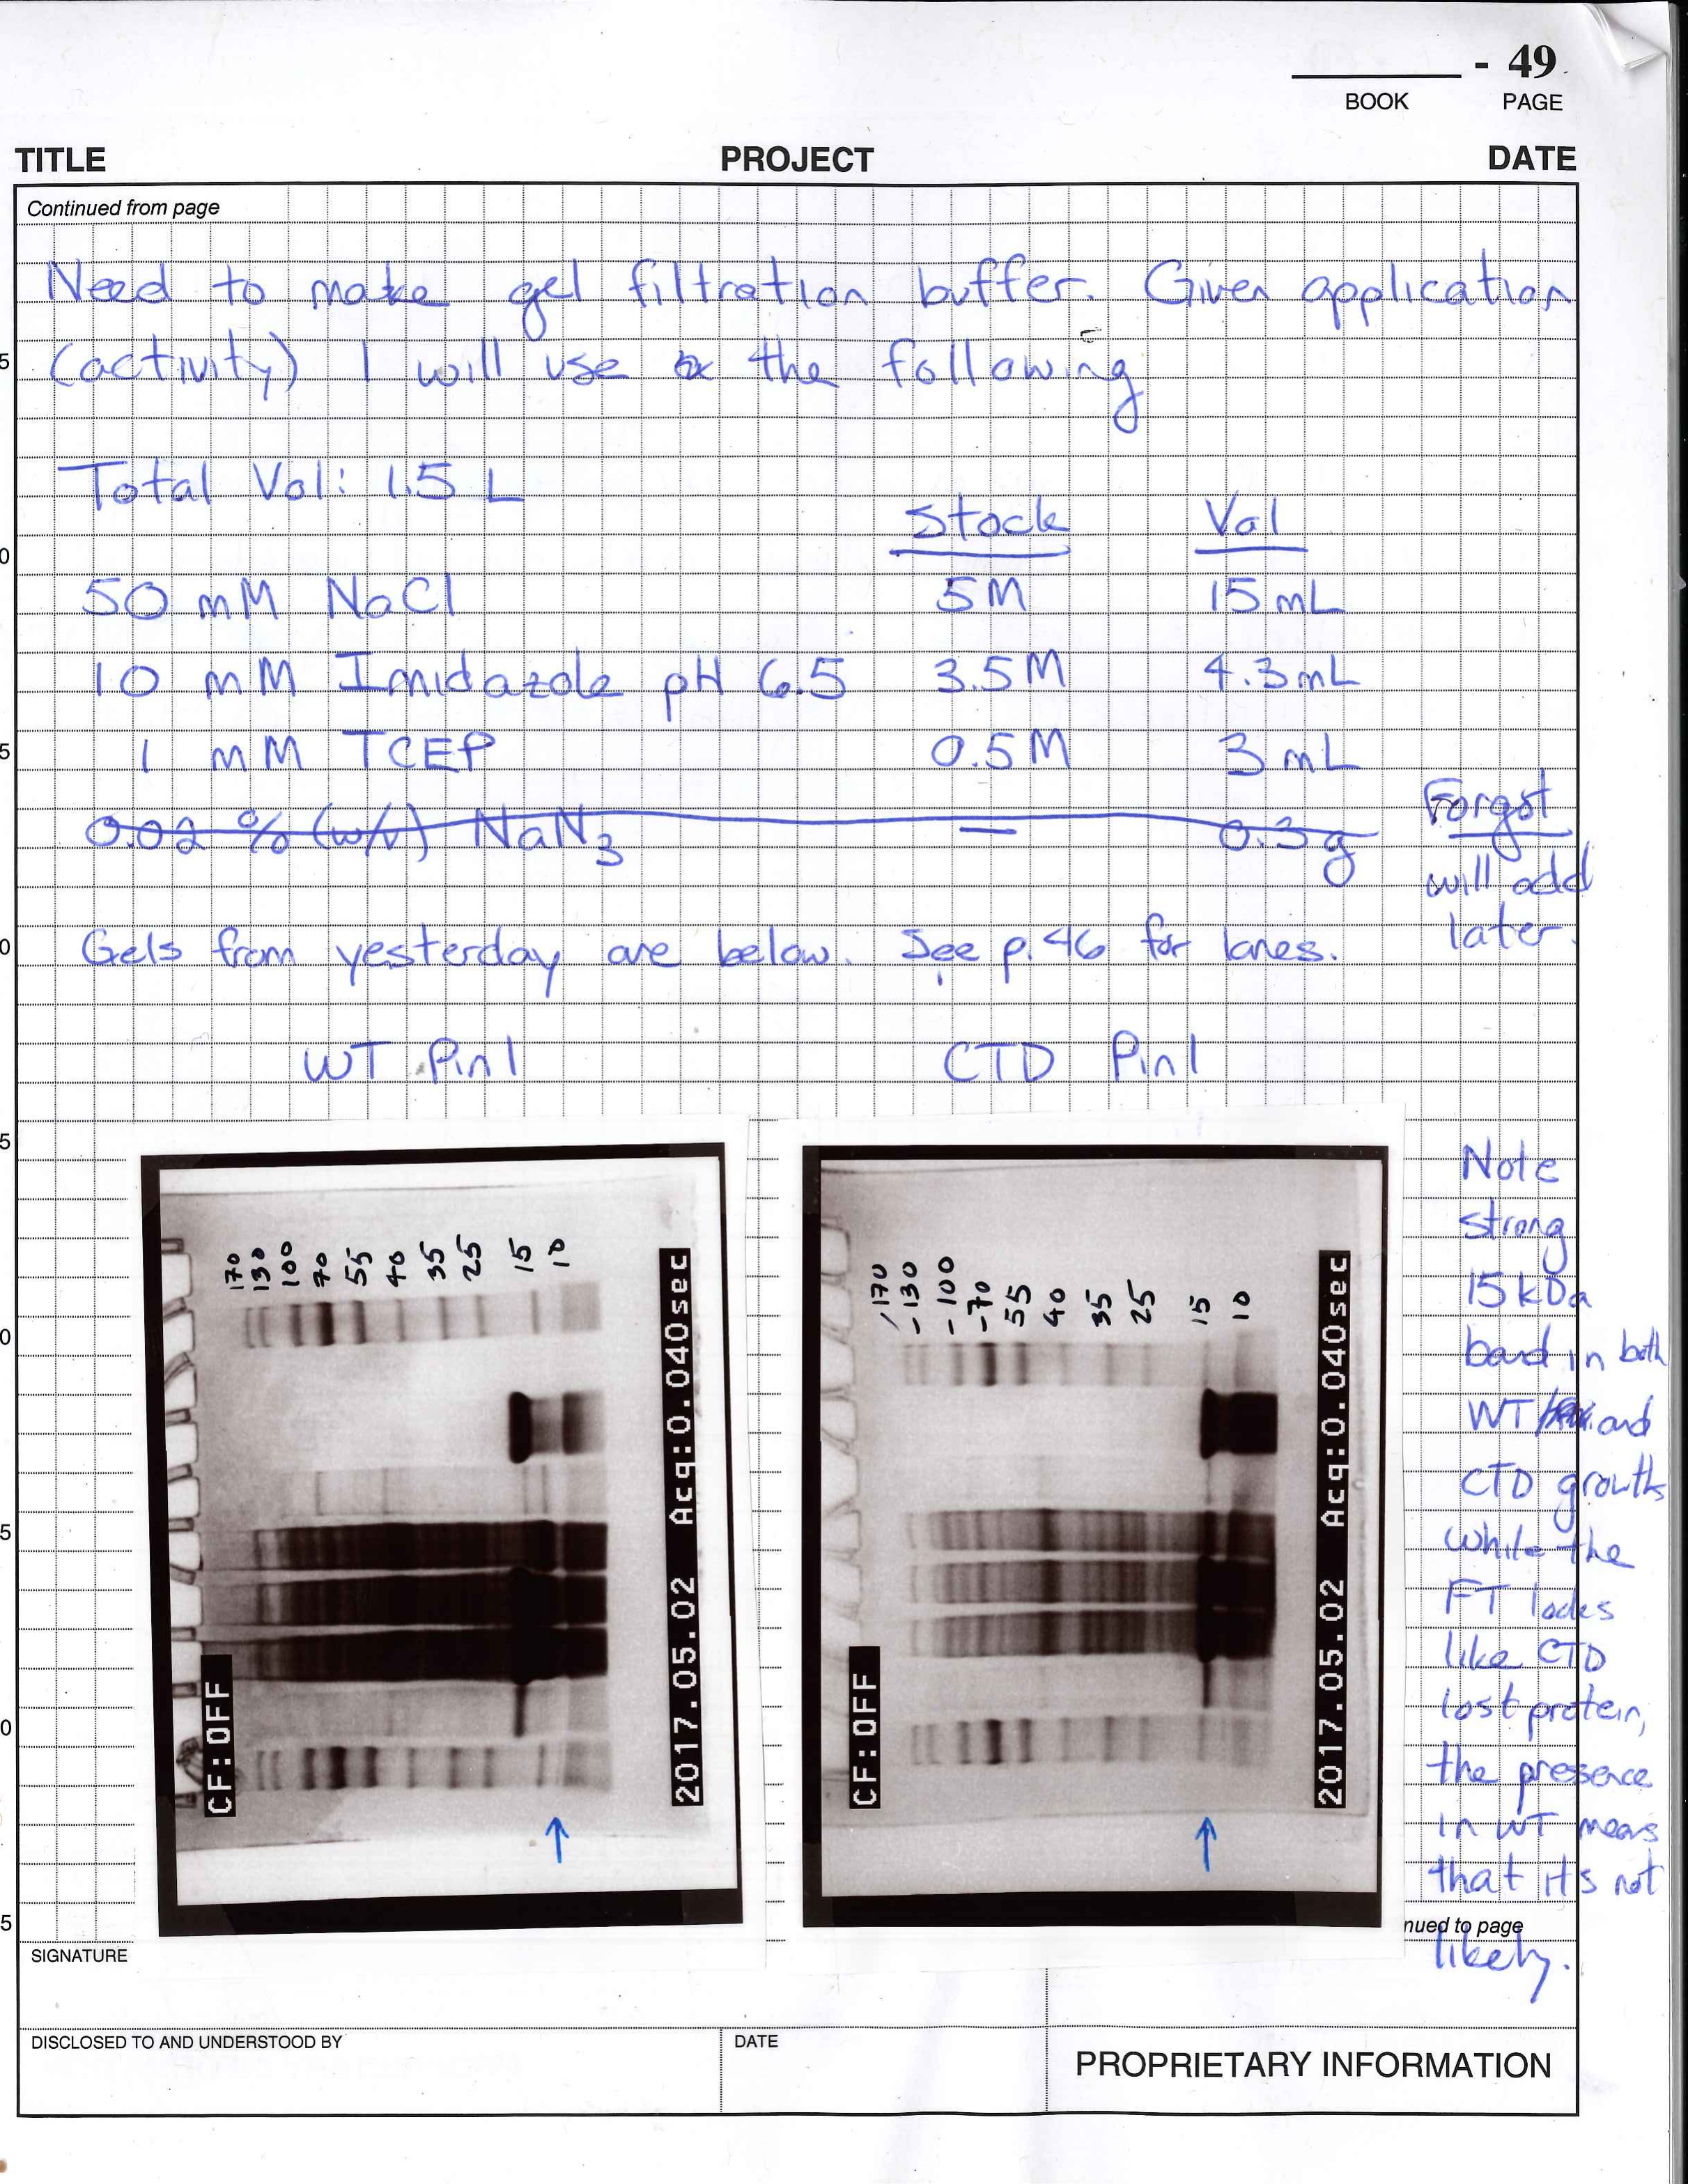 - 49
BOOK PAGE
TITLE PROJECT DATE
Continued from page
Need to make gel filtration buffer. Given application
(activity) I will use the following
Total Vol: 1.5 L
Stock Vol
50 mM NaCl 5M 15 mL
10 mM Imidazole pH 6.5 3.5M 4.3 mL
1 mM TCEP 0.5M 3 mL
0.02 % (w/v) NaN3 — 0.3g
Forgot
will add
later.
Gels from yesterday are below. See p. 46 for lanes.
WT Pin1 CTD Pin1
170 130 100 70 55 40 35 25 15 10
CF:OFF
2017.05.02 Acq:0.040sec
170 130 100 70 55 40 35 25 15 10
CF:OFF
2017.05.02 Acq:0.040sec
Note
strong
15 kDa
band in both
WT and
CTD growths
while the
FT looks
like CTD
lost protein,
the presence
in WT means
that it's not
likely.
nued to page
SIGNATURE
DISCLOSED TO AND UNDERSTOOD BY DATE
PROPRIETARY INFORMATION
5
0
5
0
5
0
5
0
5